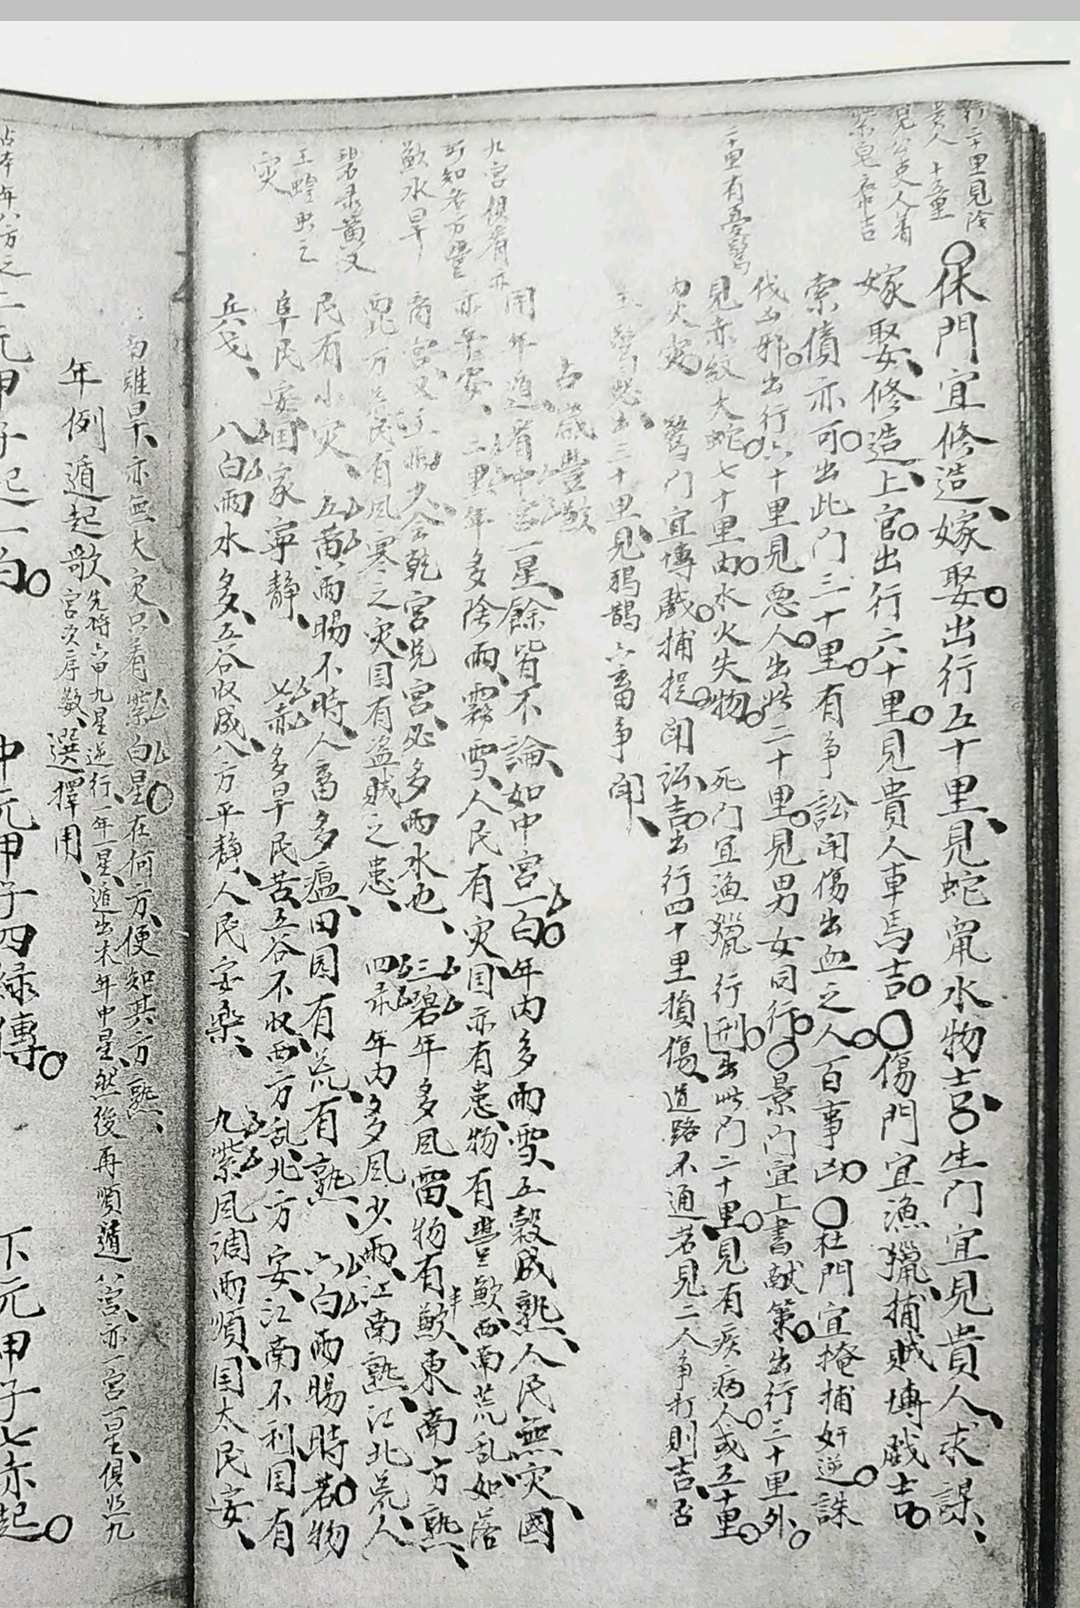 行二十里見陰
貴人 十五里
見公吏人着
紫皂衣吉
二十里有憂驚
休門宜修造嫁娶出行五十里見蛇鼠水物吉生門宜見貴人求謀
嫁娶修造上官出行六十里見貴人車馬吉傷門宜漁獵捕賊博戲吉
索債亦可出此門三十里有爭訟鬪傷出血之人百事凶杜門宜掩捕奸逆誅
伐凶邪出行六十里見惡人出此二十里見男女同行景門宜上書献策出行三十里外
見赤紋大蛇七十里由水火失物 死門宜漁獵行刑出此門二十里見有疾病人或五十里
火 驚門宜博戲捕捉鬪訟吉出行四十里損傷道路不通若見二人爭打則吉否
驚恐出三十里見鴉鵲六畜爭鬪
占歲豐歉
用年遁着中宮一星餘皆不論如中宮一白年内多雨雪五穀成熟人民無灾國
亦平安 二黑年多陰雨霧雪人民有灾国亦有患物有豐歉西南荒乱如落
离宮又主雨少会乾宮兌宮必多雨水也 三碧年多風雷物有歉東南方熟
西北方荒民有風寒之灾国有盗賊之患 四录年内多風少雨江南熟江北荒人
民有小灾 五黄雨暘不時人畜多瘟田园有荒有熟 六白雨暘時若物
阜民安国家寧静 七赤多旱民苦五谷不收西方乱北方安江南不利国有
兵戈 八白雨水多五谷收成八方平静人民安樂 九紫風調雨順国太民安
九宮俱有亦
可知各方豐
歉水旱
碧录黄又
主蝗虫之
灾
雖旱亦無大灾只看紫白星在何方便知其方熟
年例遁起歌 先將 九星逆行一年一星遁出本年中星然後再順遁八宮亦一宮一星俱照九
宮次序数 選擇用
占本年八方之
上元甲子起一白
中元甲子四绿傳
下元甲子七赤起